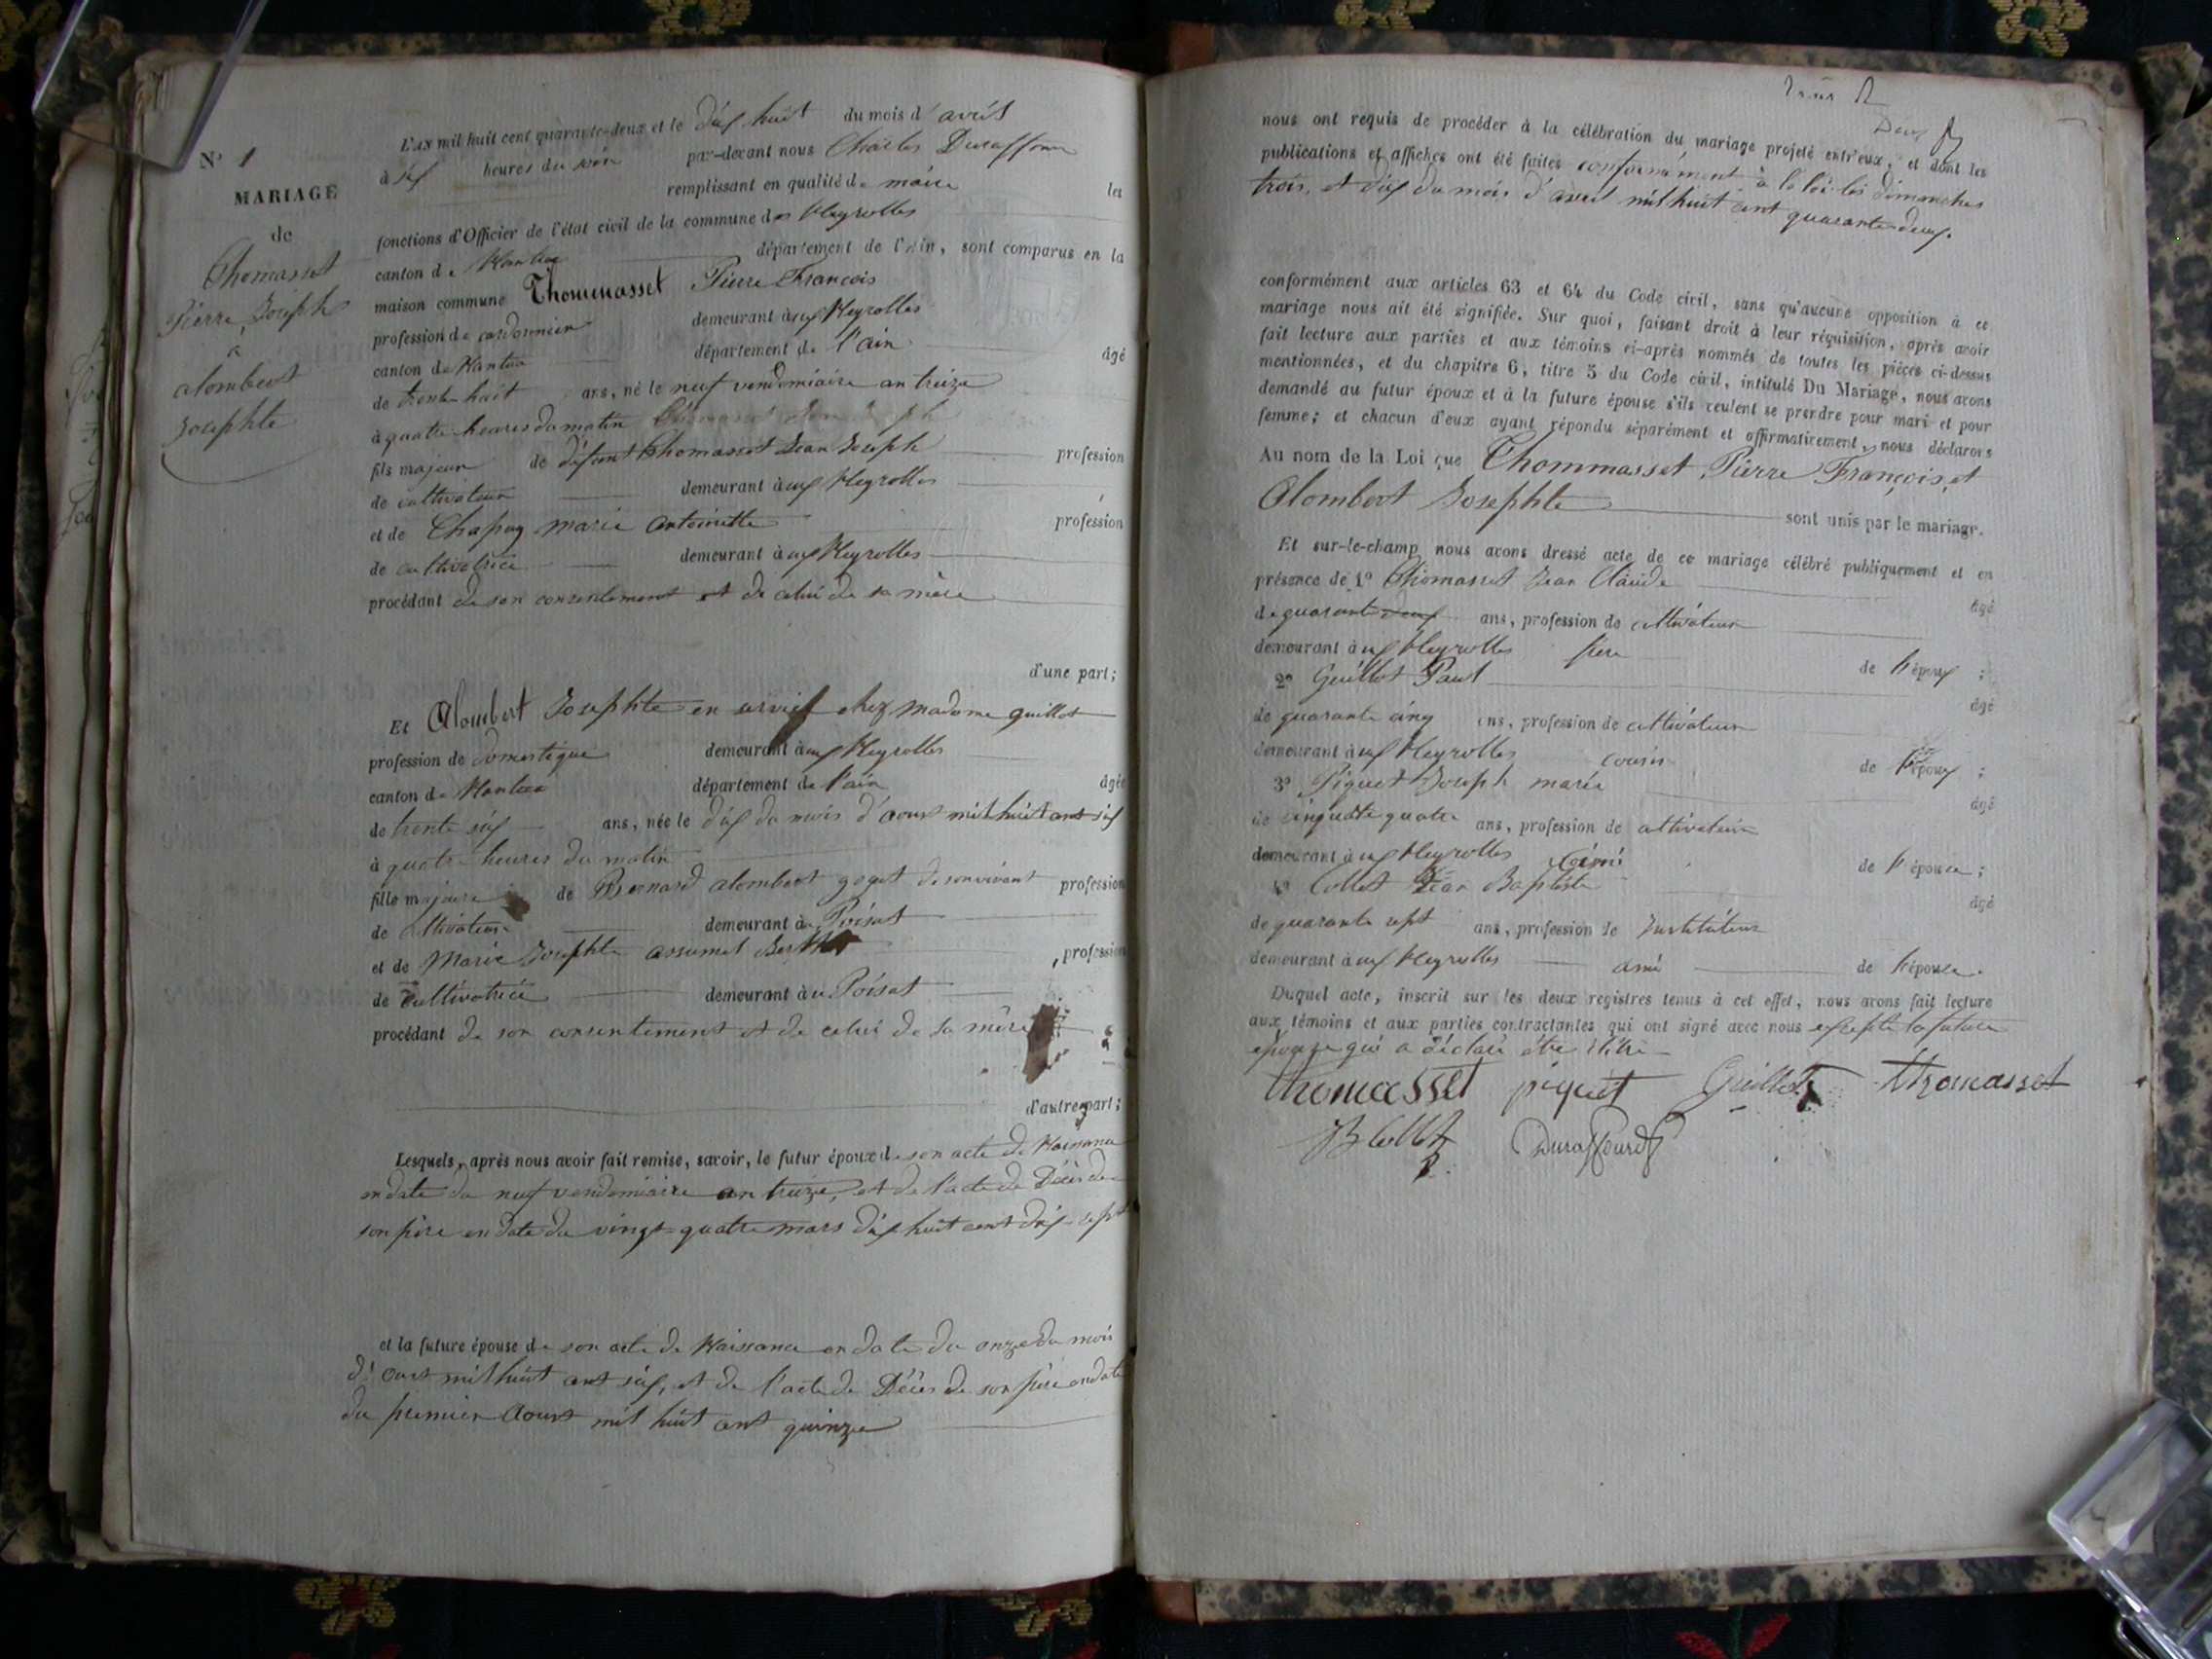 N° 1
MARIAGE
de
Thomasset
Pierre Joseph
à
alombert
Josephte
L'AN mil huit cent quarante-deux et le dix huit du mois d'avril
à six heures du soir par-devant nous Charles
remplissant en qualité de maire les
fonctions d'Officier de l'état civil de la commune des Neyrolles
canton de Nantua département de l'Ain, sont comparus en la
maison commune Thommasset Pierre François
profession de cordonnier demeurant aux Neyrolles
canton de Nantua département de l'ain âgé
de trente-huit ans, né le neuf vendemiaire an treize
à quatre heures du matin
fils majeur de défunt Thomasset Jean Joseph profession
de cultivateur demeurant aux Neyrolles
et de Chapuy marie antoinette profession
de cultivatrice demeurant aux Neyrolles
procédant de son consentement et de celui de sa mère
d'une part;
Et Alombert Josephte en service chez madame guillot
profession de domestique demeurant aux Neyrolles
canton de Nantua département de l'ain âgée
de trente six ans, née le dix du mois d'aoust mil huit cent six
à quatre heures du matin
fille majeure de Bernard alombert goget de son vivant profession
de cultivateur demeurant à Poisat
et de Marie Josephte assumel profession
de cultivatrice demeurant à Poisat
procédant de son consentement et de celui de sa mère
d'autre part;
Lesquels, après nous avoir fait remise, savoir, le futur époux de son acte de Naissance
en date du neuf vendemiaire an treize, et de l'acte de Décès de
son père en date du vingt-quatre mars dix huit cent dix-sept
et la future épouse de son acte de Naissance en date du onze du mois
d'aoust mil huit cent six, et de l'acte de Décès de son père en date
du premier Aoust mil huit cent quinze
Deux
nous ont requis de procéder à la célébration du mariage projeté entr'eux, et dont les
publications et affiches ont été faites conformément à la loi les dimanches
trois, et dix du mois d'avril mil huit cent quarante-deux.
conformément aux articles 63 et 64 du Code civil, sans qu'aucune opposition à ce
mariage nous ait été signifiée. Sur quoi, faisant droit à leur réquisition, après avoir
fait lecture aux parties et aux témoins ci-après nommés de toutes les pièces ci-dessus
mentionnées, et du chapitre 6, titre 5 du Code civil, intitulé Du Mariage, nous avons
demandé au futur époux et à la future épouse s'ils veulent se prendre pour mari et pour
femme; et chacun d'eux ayant répondu séparément et affirmativement, nous déclarons
Au nom de la Loi que Thommasset Pierre François, et
Alombert Josephte sont unis par le mariage.
Et sur-le-champ nous avons dressé acte de ce mariage célébré publiquement et en
présence de 1° Thomasset Jean Claude âgé
de quarante ans, profession de cultivateur
demeurant aux Neyrolles frère de l'époux ;
2° Guillot Paul âgé
de quarante cinq ans, profession de cultivateur
demeurant aux Neyrolles cousin de l'époux ;
3° Piquet Joseph marie âgé
de cinquante quatre ans, profession de cultivateur
demeurant aux Neyrolles ami de l'épouse ;
4° Collet Jean Baptiste âgé
de quarante sept ans, profession de Instituteur
demeurant aux Neyrolles ami de l'épouse.
Duquel acte, inscrit sur les deux registres tenus à cet effet, nous avons fait lecture
aux témoins et aux parties contractantes qui ont signé avec nous excepté la future
épouse qui a déclaré être
thomasset piquet Guillot thomasset
JB Collet Duraffourd